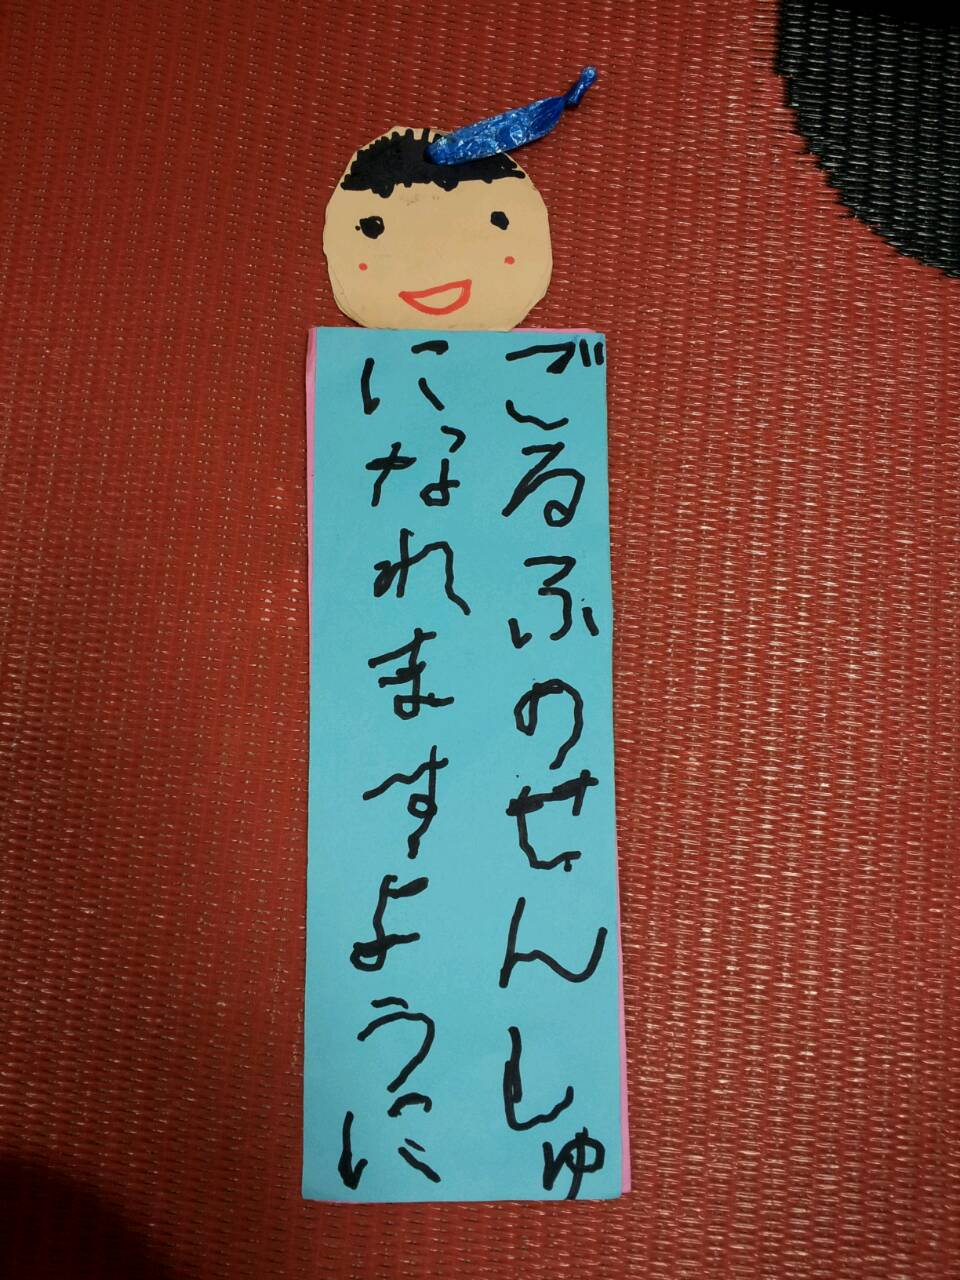 ごるふのせんしゅ
になれますように